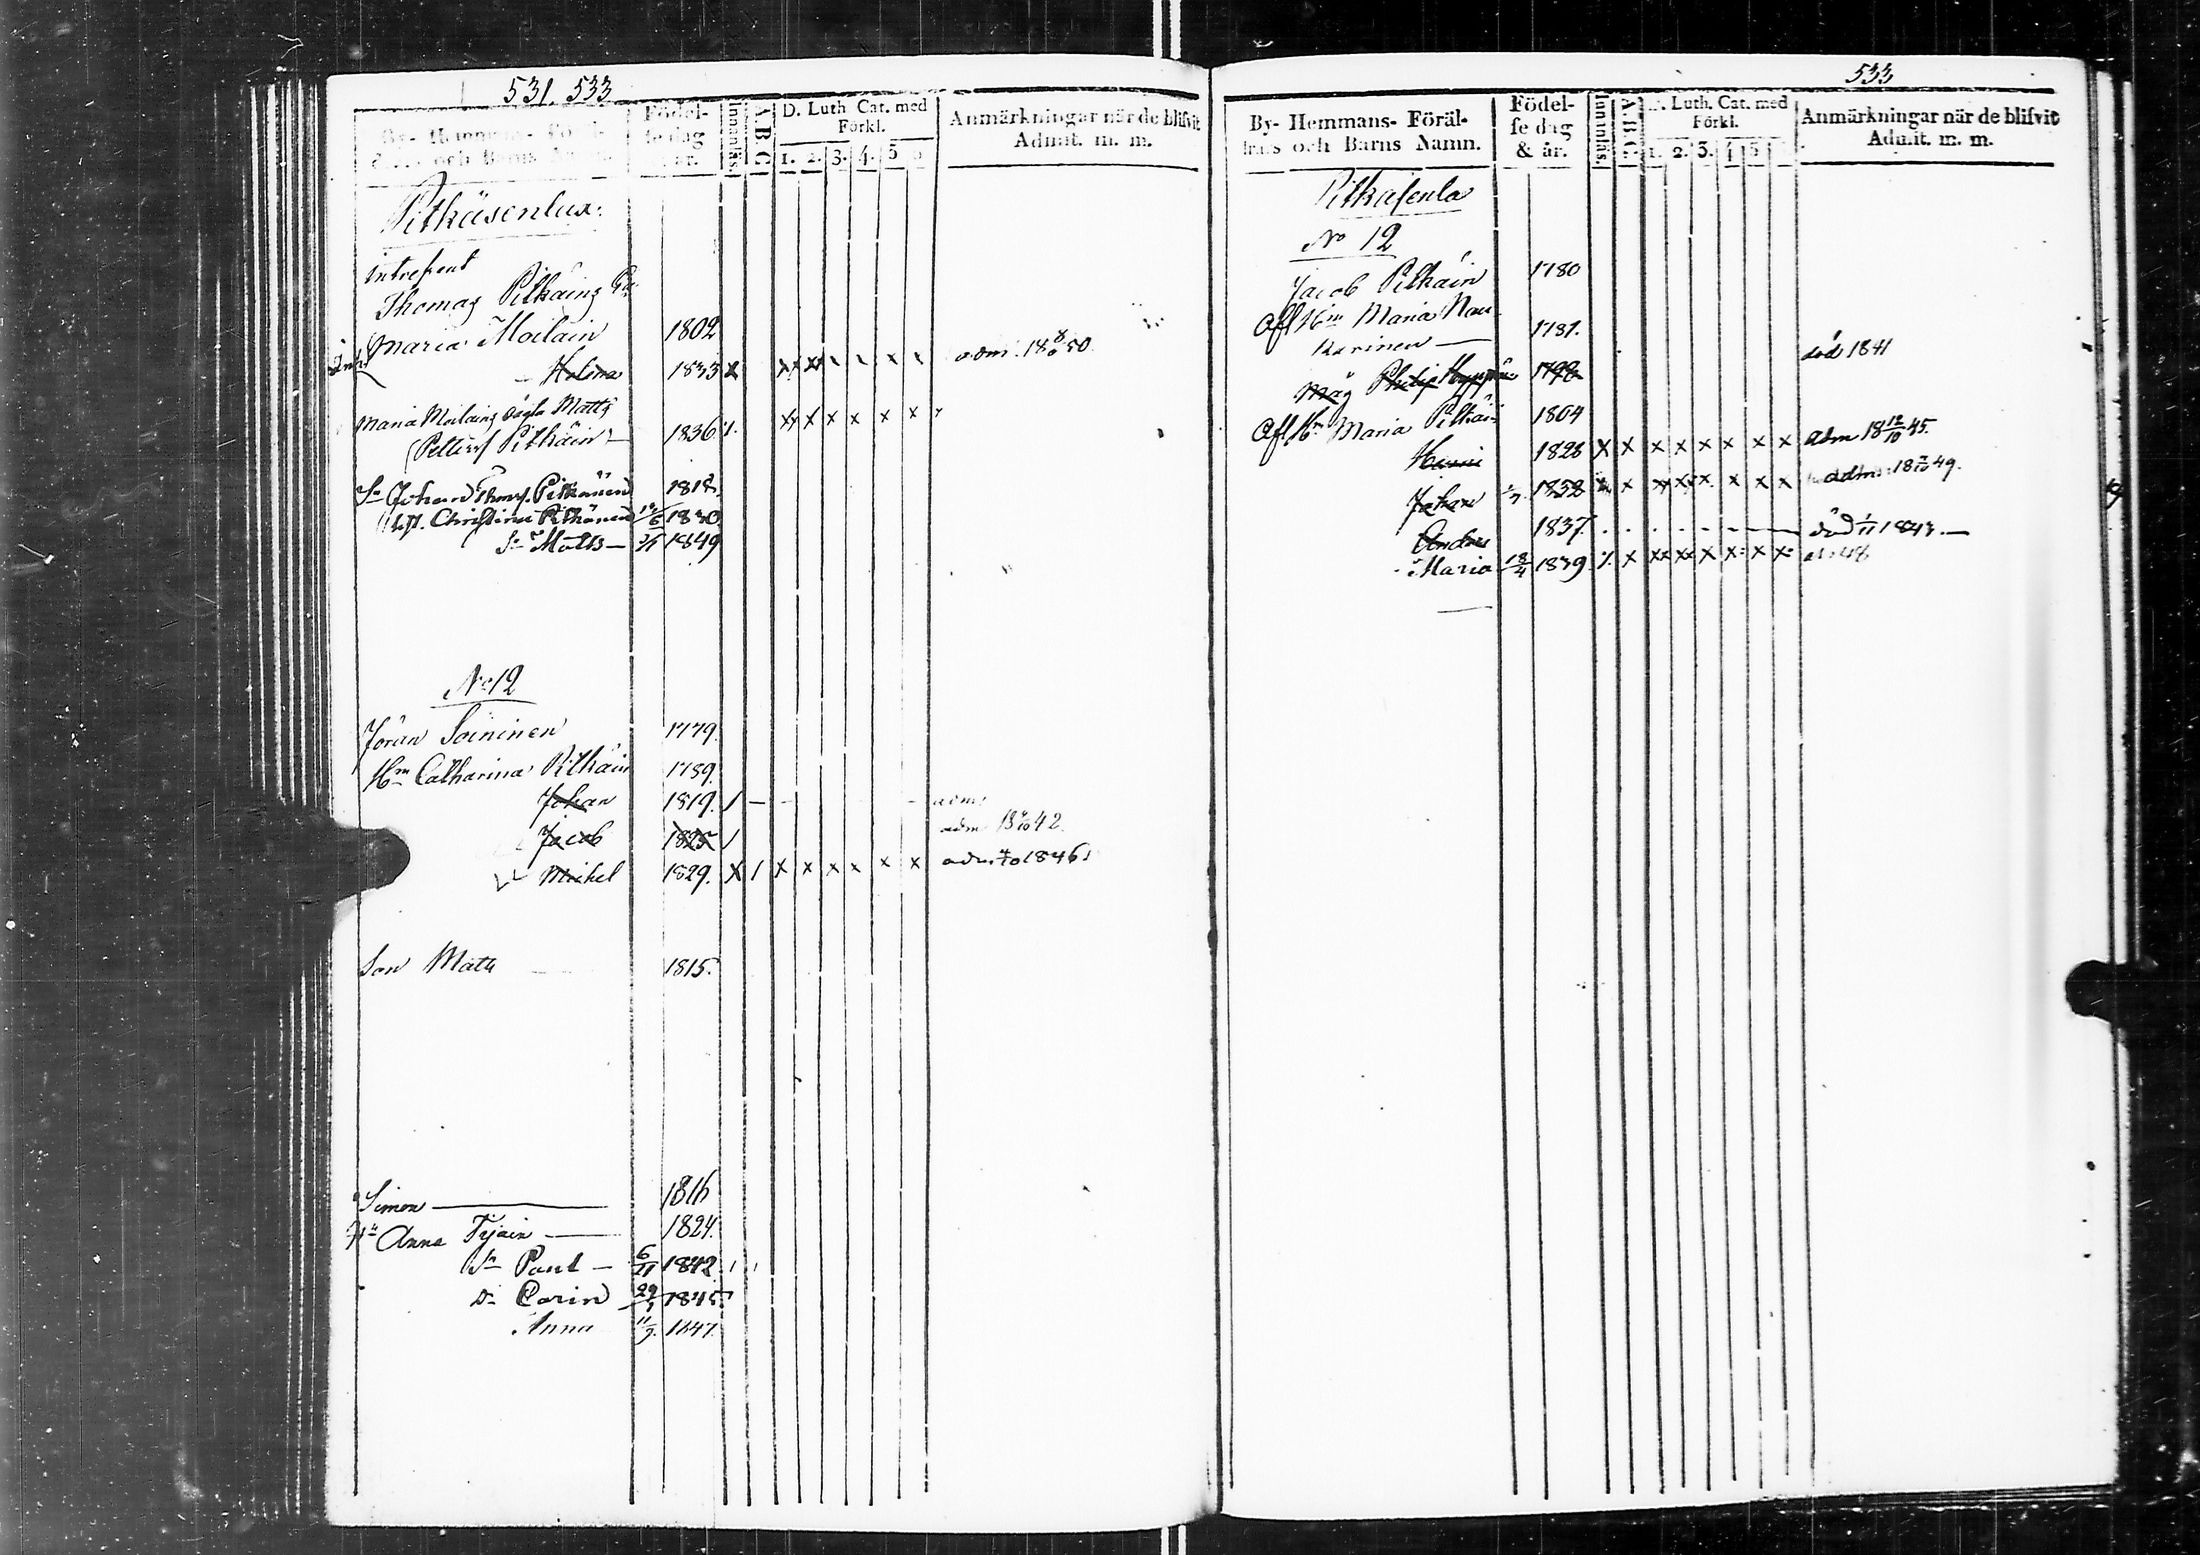 531. 533
By- Hemmans- Föräl-
drars och Barns Namn.
Födel-
se dag
& år.
Innanläs.
A.B.C.
D. Luth. Cat. med
Förkl.
1. 2. 3. 4. 5
Anmärkningar när de blifvit
Admit. m. m.
Pitkäsenlax:
Thomas Pitkäing
Maria Moilain 1802
Helena 1833 x x x x x x x adm. 18 50
Maria Moilaing Matts
Petters Pitkäin 1836 x x x x x x
Sn Johan Thoms. Pitkänen 1818
Christina Pitkänen 1830
Sn Matts 1849
No 12
Jöran Soininen 1779.
Hm Catharina Pitkäin 1789.
Johan 1819. / adm:
Jacob 1825 / adm 18 42.
Michel 1829. X / x x x x x x adm. 1846
Son Mats 1815.
Simon 1816
Anna Tijain 1824.
Sn Paul 6/11 1842
D. Carin 1845
Anna 11/9 1847.
533
By- Hemmans- Föräl-
drars och Barns Namn.
Födel-
se dag
& år.
Innanläs.
A.B.C.
D. Luth. Cat. med
Förkl.
1. 2. 3. 4 5
Anmärkningar när de blifvit
Admit. m. m.
Pitkäsenla
No 12
Jacob Pitkäin 1780
Afl Hm Maria Nau-
karinen 1781.
död 1841
Måg Philip
Afl. Hn Maria Pitkäin 1804
1828 x x x x x x x x adm 18 12/10 45.
Johan x x x x x x x adm. 18 49.
Anders 1837. död 1/11 1843.
Maria 18/4 1839 x x x x x x x